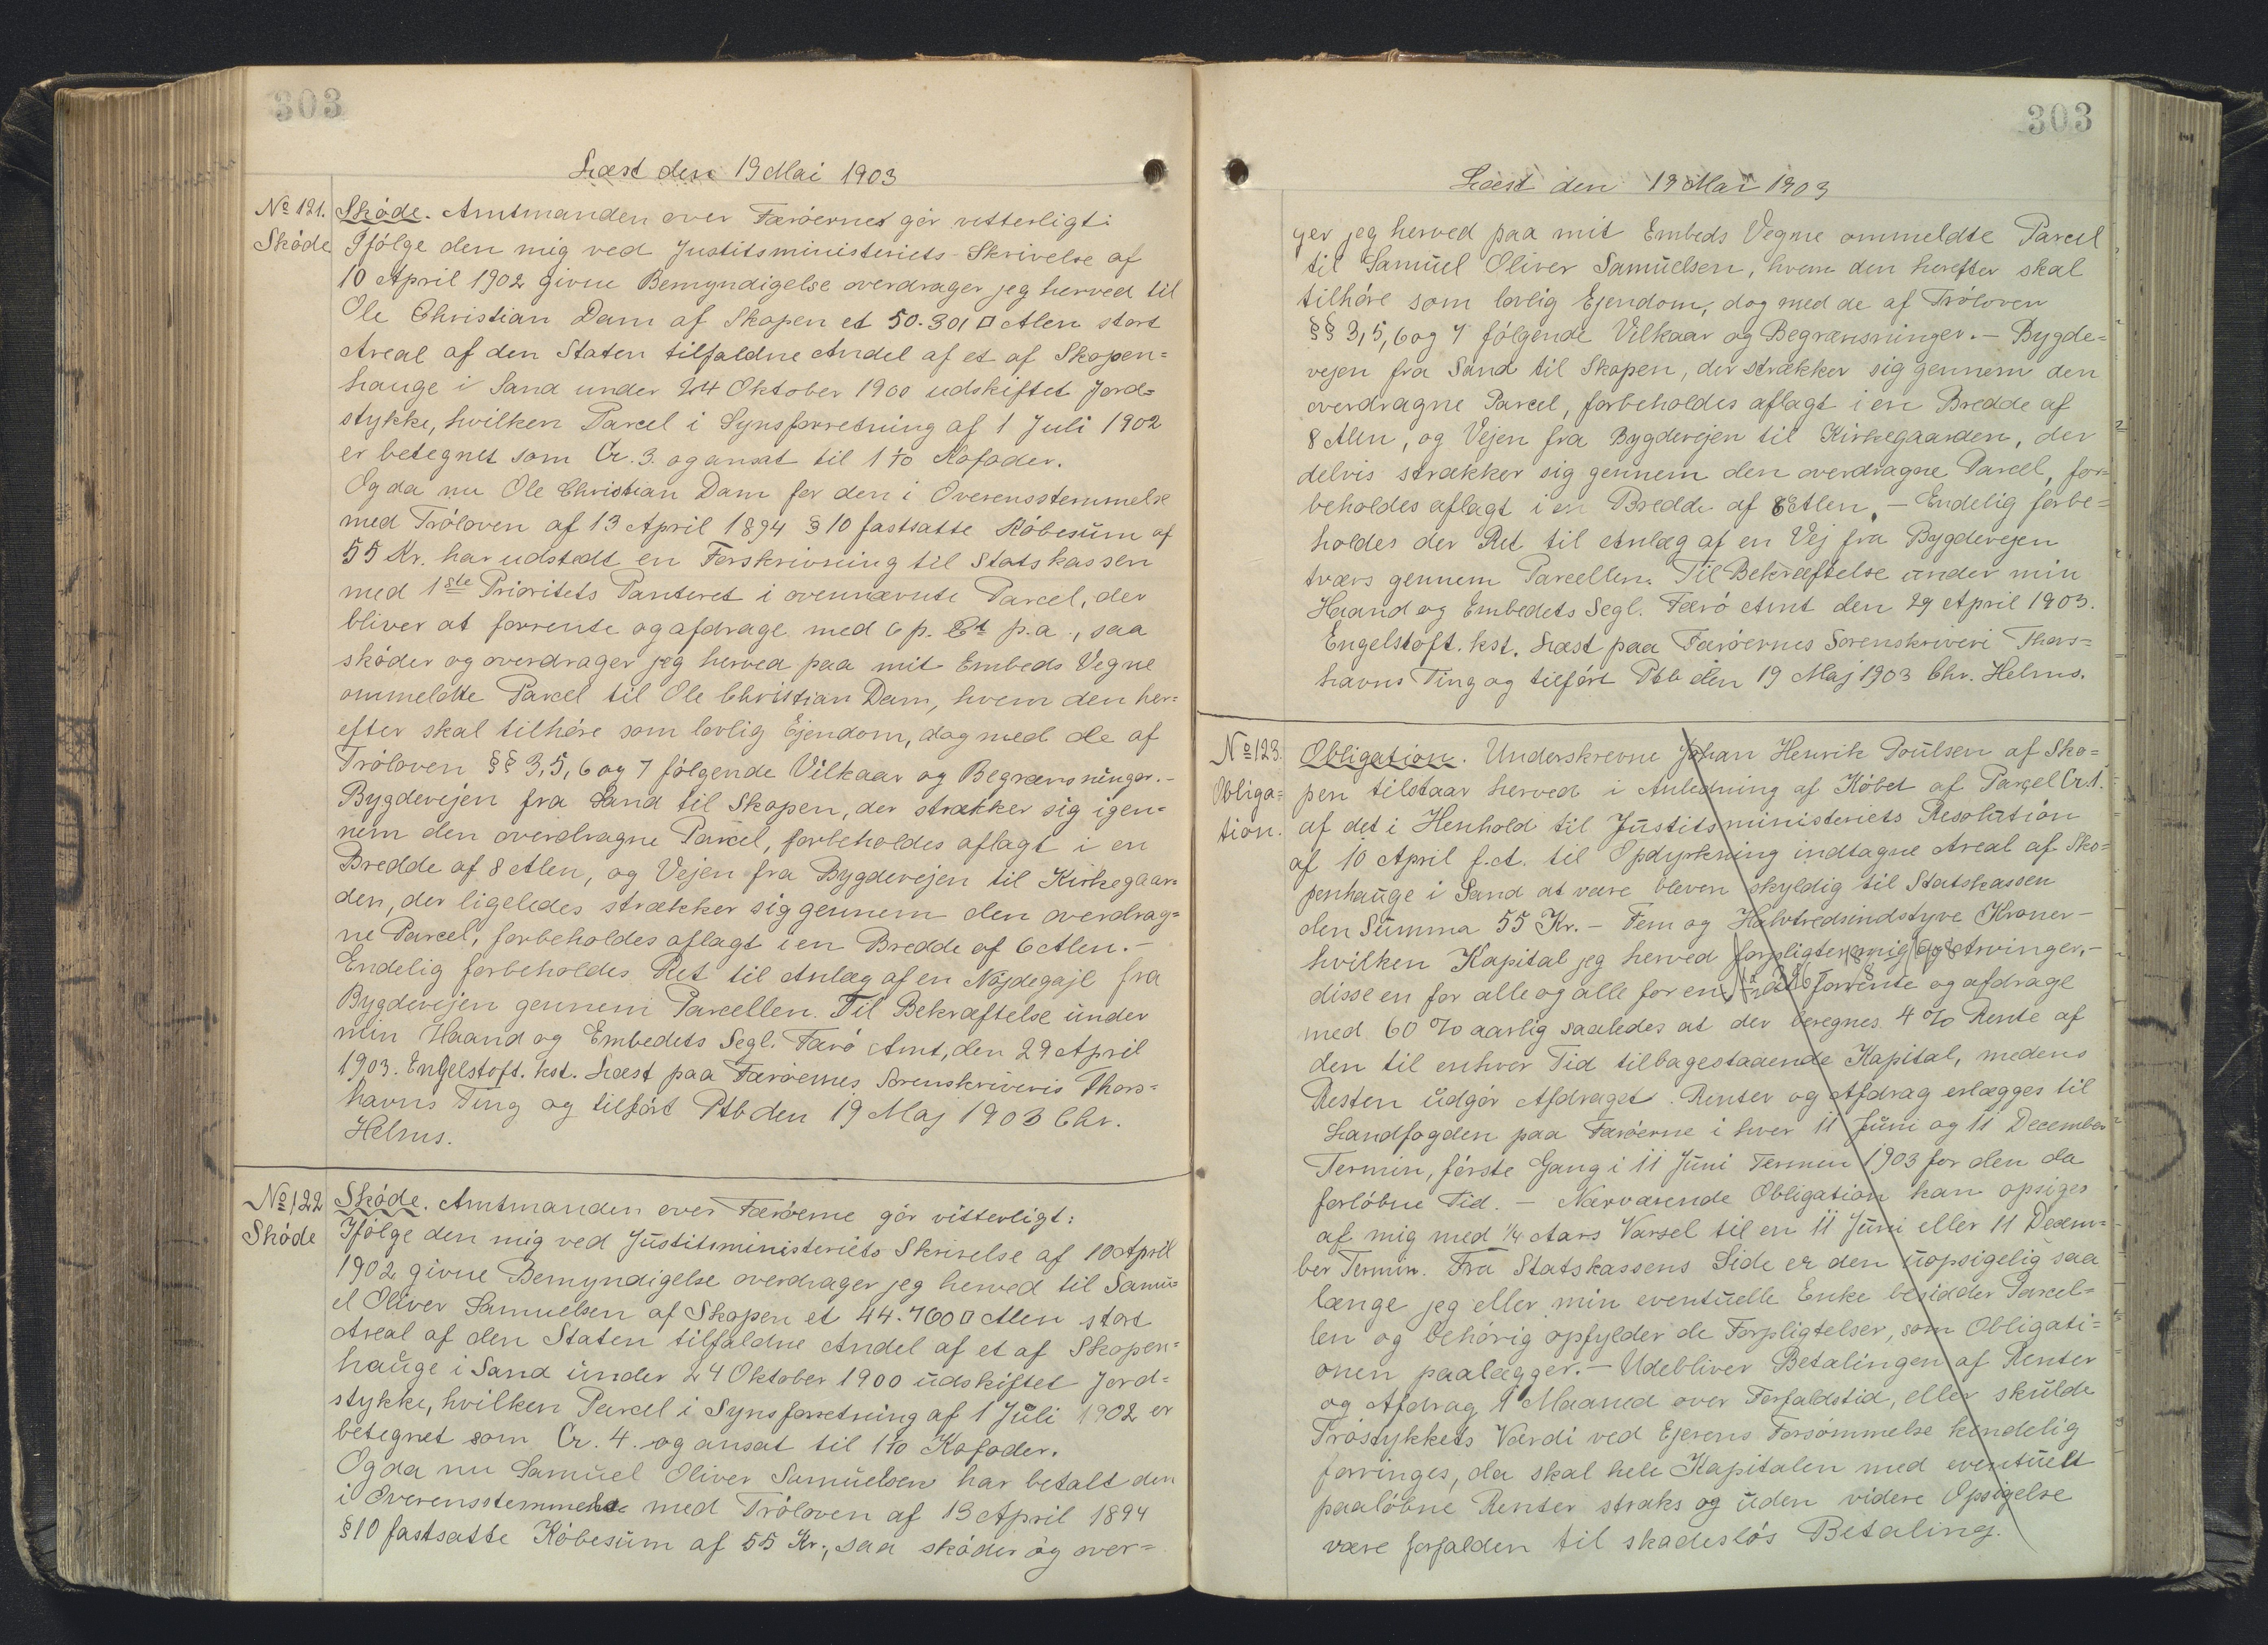 303
Læst den 19 Mai 1903
No 121. Sköde. Amtmanden over Færöernes gör vetterligt:
Sköde Ifölge den mig ved Justitsministeriets Skrivelse af
10 April 1902 givne Bemyndigelse overdrager jeg herved til
Ole Christian Dam af Skopen et 50.301 □ Alen stort
Areal af den Staten tilfaldne Andel af et af Skopen=
hauge i Sand under 24 Oktober 1900 udskiftet Jord=
stykke, hvilken Parcel i Synsforretning af 1 Juli 1902
er betegnet som Cr. 3. og ansat til 1 1/10 Kofoder.
Og da nu Ole Christian Dam for den i Overensstemmelse
med Tröloven af 13 April 1894 § 10 fastsatte Köbesum af
55 Kr. har udstedt en Forskrivning til Statskassen
med 1ste Prioritets Panteret i ovennævnte Parcel, der
bliver at forrente og afdrage med 6 p. Ct p.a., saa
sköder og overdrager jeg herved paa mit Embeds Vegne
ommeldte Parcel til Ole Christian Dam, hvem den her=
efter skal tilhöre som lovlig Ejendom, dog med de af
Tröloven §§ 3, 5, 6 og 7 fölgende Vilkaar og Begrænsninger.-
Bygdevejen fra Sand til Skopen, der strækker sig igen=
nem den overdragne Parcel, forbeholdes aflagt i en
Bredde af 8 Alen, og Vejen fra Bygdevejen til Kirkegaar=
den, der ligeledes strækker sig gennem den overdrag=
ne Parcel, forbeholdes aflagt i en Bredde af 6 Alen.-
Endelig forbeholdes Ret til Anlæg af en Nöjdegajl fra
Bygdevejen gennem Parcellen. Til Bekræftelse under
min Haand og Embedets Segl. Færö Amt, den 29 April
1903. Engelstoft. kst. Læst paa Færöernes Sorenskriveris Thors=
havns Ting og tilfört Ptb den 19 Maj 1903 Chr.
Helms.
No 122 Sköde. Amtmanden over Færöerne gör vitterligt:
Sköde Ifölge den mig ved Justitsministeriets Skrivelse af 10 April
1902 givne Bemyndigelse overdrager jeg herved til Samu=
el Oliver Samuelsen af Skopen et 44.760 □ Alen stort
Areal af den Staten tilfaldne Andel af et af Skopen=
hauge i Sand under 24 Oktober 1900 udskiftet Jord=
stykke, hvilken Parcel i Synsforretning af 1 Juli 1902 er
betegnet som Cr. 4. og ansat til 1 1/10 Kofoder.
Og da nu Samuel Oliver Samuelsen har betalt den
i Overensstemmelse med Tröloven af 13 April 1894
§ 10 fastsatte Köbesum af 55 Kr., saa sköder og over=
303
Læst den 19 Mai 1903
ger jeg herved paa mit Embeds Vegne ommeldte Parcel
til Samuel Oliver Samuelsen, hvem den herefter skal
tilhöre som lovlig Ejendom, dog med de af Tröloven
§§ 3, 5, 6 og 7 fölgende Vilkaar og Begrænsninger.- Bygde=
vejen fra Sand til Skopen, der strækker sig gennem den
overdragne Parcel, forbeholdes aflagt i en Bredde af
8 Alen, og Vejen fra Bygdevejen til Kirkegaarden, der
delvis strækker sig gennem den overdragne Parcel, for=
beholdes aflagt i en Bredde af 6 Alen.- Endelig forbe=
holdes der Ret til Anlæg af en Vej fra Bygdevejen
tværs gennem Parcellen. Til Bekræftelse under min
Haand og Embedets Segl. Færö Amt den 29 April 1903.
Engelstoft. kst. Læst paa Færöernes Sorenskriveri Thors=
havns Ting og tilfört Ptb den 19 Maj 1903 Chr. Helms.
No 123. Obligation. Underskrevne Johan Henrik Poulsen af Sko=
Obliga= pen tilstaar herved i Anledning af Köbet af Parcel Cr. 1.
tion. af det i Henhold til Justitsministeriets Resolution
af 10 April f.A. til Opdyrkning indtagne Areal af Sko=
penhauge i Sand at være bleven skyldig til Statskassen
den Summa 55 Kr.- Fem og Halvtredsindstyve Kroner-
hvilken Kapital jeg herved forpligter mig og Arvinger,-
disse en for alle og alle for en, at forrente og afdrage
med 60 % aarlig saaledes at der beregnes 4 % Rente af
den til enhver Tid tilbagestaaende Kapital, medens
Resten udgör Afdraget. Renter og Afdrag erlægges til
Landfogden paa Færöerne i hver 11 Juni og 11 December
Termin, förste Gang i 11 Juni Termin 1903 for den da
forlöbne Tid.- Nærværende Obligation kan opsiges
af mig med 1/4 Aars Varsel til en 11 Juni eller 11 Decem=
ber Termin. Fra Statskassens Side er den uopsigelig saa
længe jeg eller min eventuelle Enke besidder Parcel=
len og behörig opfylder de Forpligtelser, som Obligati=
onen paalægger.- Udebliver Betalingen af Renter
og Afdrag 1 Maaned over Forfaldstid, eller skulde
Tröstykkets Værdi ved Ejerens Forsömmelse kendelig
forringes, da skal hele Kapitalen med eventuelt
paalöbne Renter straks og uden videre Opsigelse
være forfalden til skadeslös Betaling.